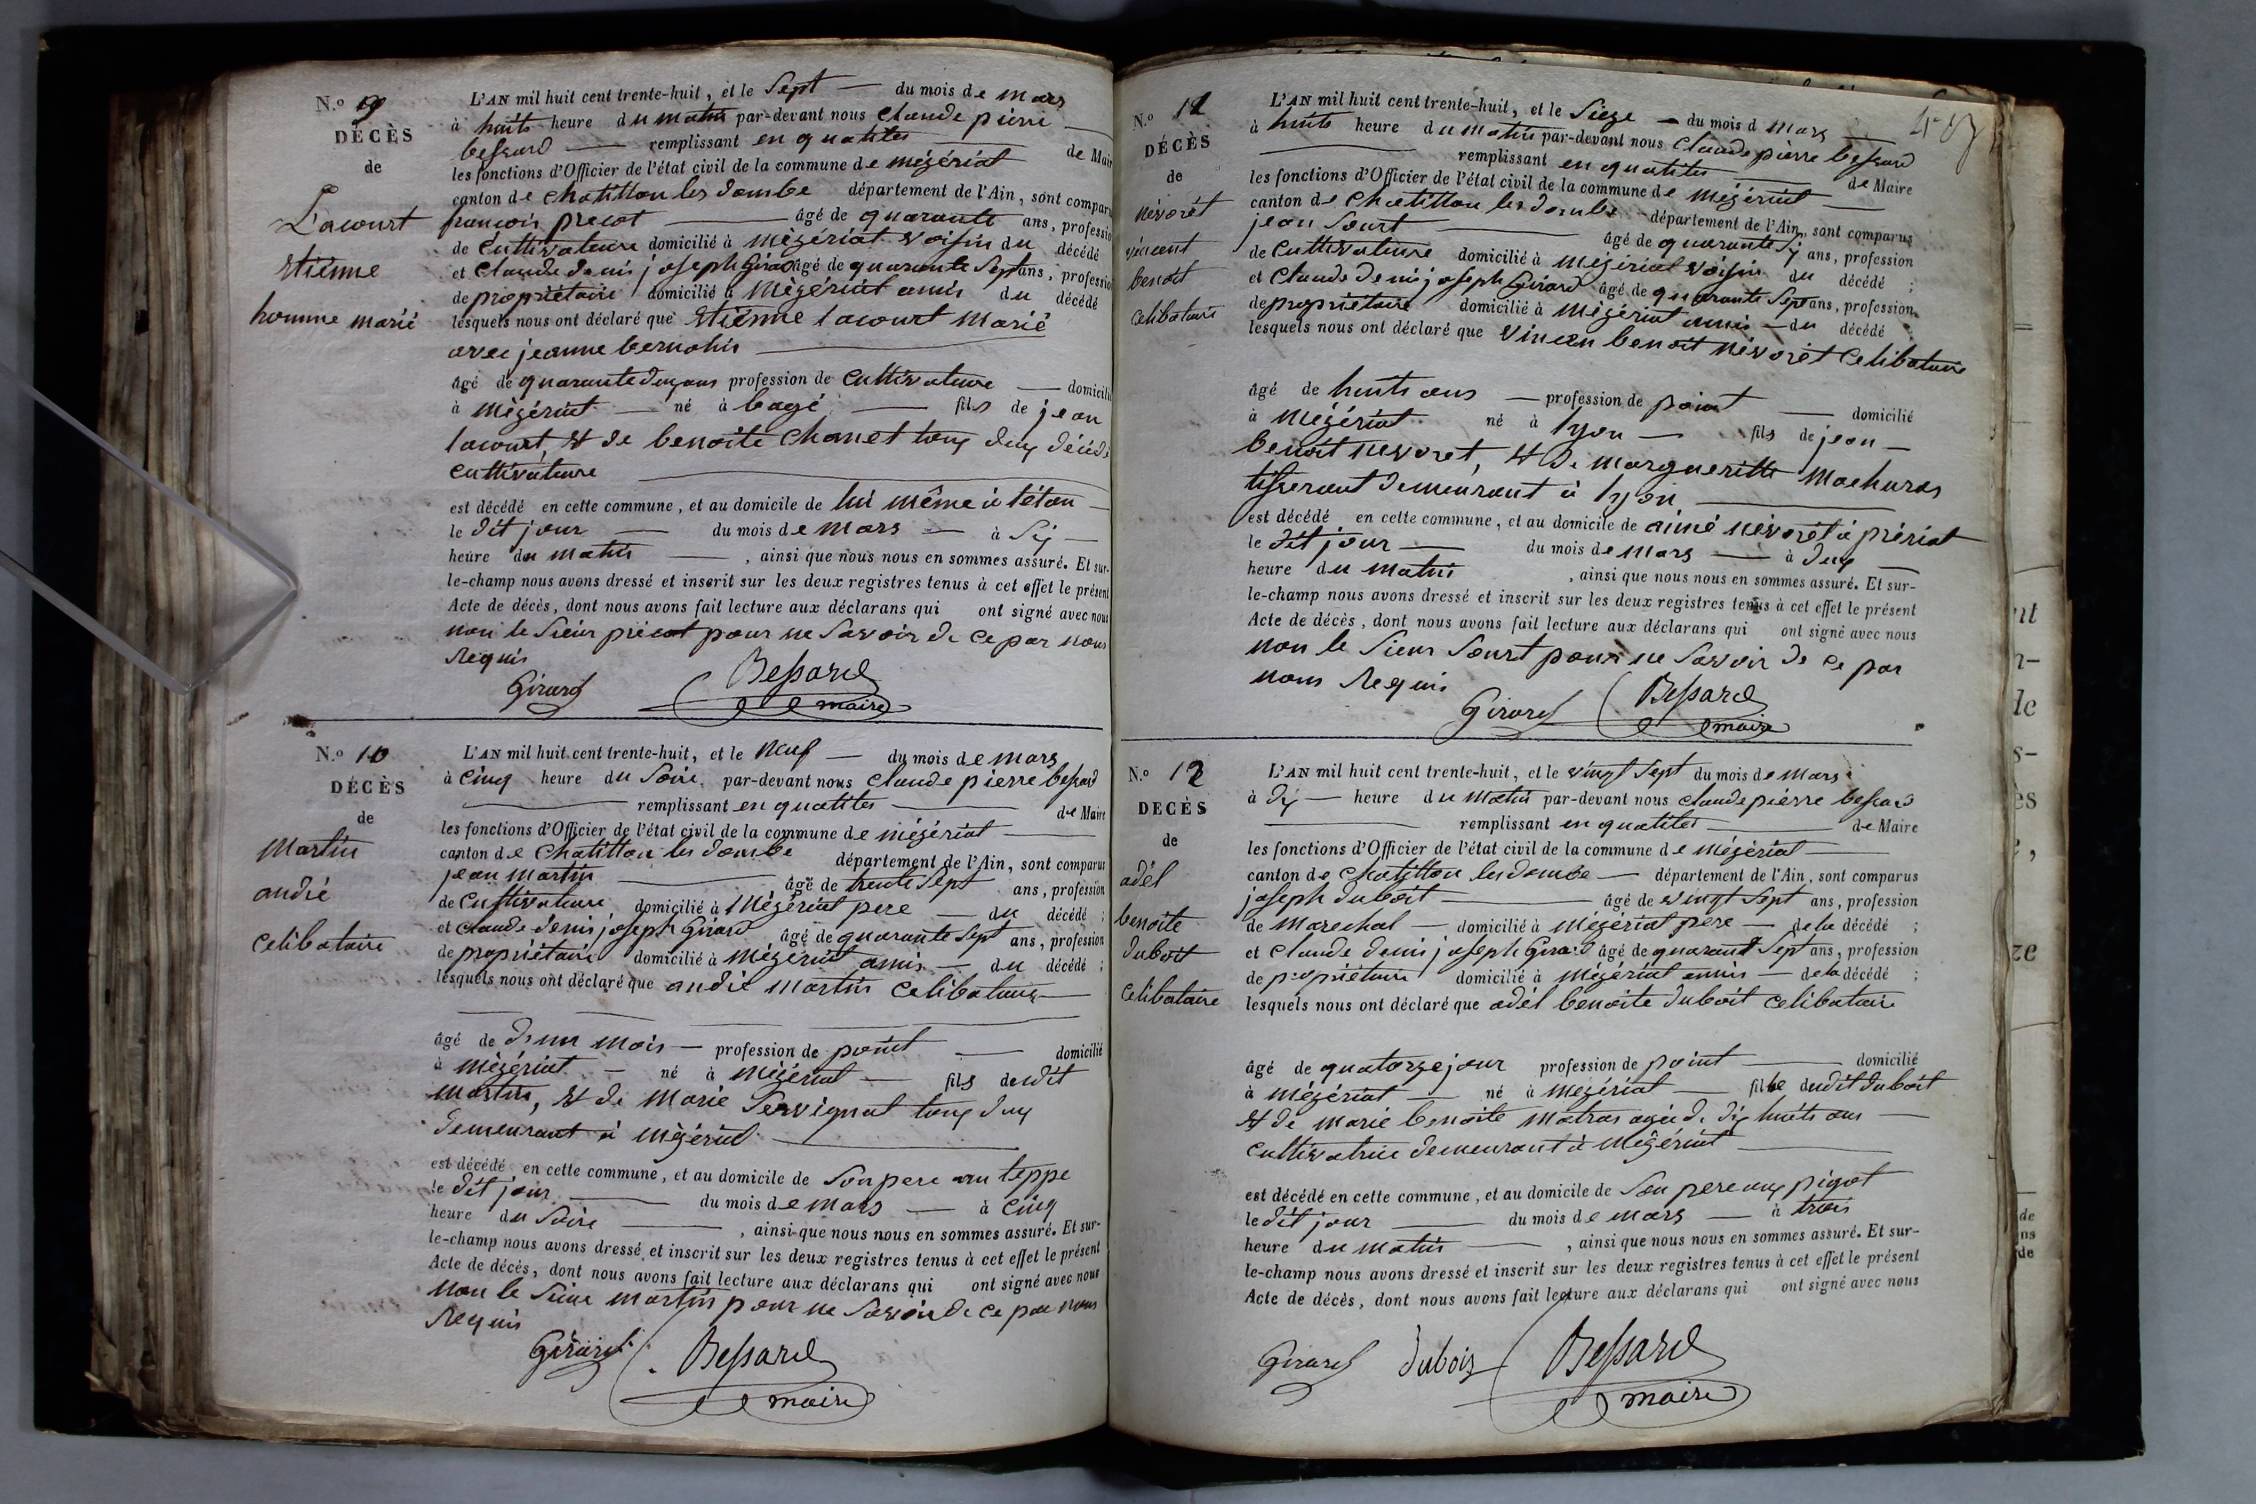 N.o 9
DÉCÈS
de
Lacourt
etiénne
homme marié
L'AN mil huit cent trente-huit, et le Sept du mois de mars
à huits heure du matin par-devant nous claude pierre
bessard remplissant en qualites de Mair
les fonctions d'Officier de l'état civil de la commune de mézériat
canton de chatillon les dombe département de l'Ain, sont comparu
françois précot âgé de quarante ans, professio
de cultivateure domicilié à mézériat voisin du décédé
et claude denis joseph Girard âgé de quarante Sept ans, professio
de propriétaire domicilié à mézériat amis du décédé
lesquels nous ont déclaré que etiénne lacourt marié
avec jeanne bernohis
âgé de quarante deux ans profession de cultivateure domicili
à mézériat né à bagé fils de jean
lacourt, et de benoite chanet tous deux décédé
cultivateure
est décédé en cette commune, et au domicile de lui même à l'étan
le dit jour du mois de mars à Six
heure du matin, ainsi que nous nous en sommes assuré. Et sur-
le-champ nous avons dressé et inscrit sur les deux registres tenus à cet effet le présent
Acte de décès, dont nous avons fait lecture aux déclarans qui ont signé avec nous
non le Sieur précot pour ne Savoir de ce par nous
Requis
Girard Bessard
maire
N.o 10
DÉCÈS
de
martin
andré
celibataire
L'AN mil huit cent trente-huit, et le neuf du mois de mars
à cinq heure du Soire par-devant nous claude pierre bessard
remplissant en qualites de Maire
les fonctions d'Officier de l'état civil de la commune de mézériat
canton de chatillon les dombe département de l'Ain, sont comparus
jean martin âgé de trente Sept ans, profession
de cultivateure domicilié à mézériat pere du décédé ;
et claude denis joseph Girard âgé de quarante Sept ans, profession
de propriétaire domicilié à mézériat amis du décédé ;
lesquels nous ont déclaré que andré martin celibataire
âgé de d'un mois profession de point domicilié
à mézériat né à mézériat fils dudit
martin, et de marie Servignat tous deux
demeurant à mézériat
est décédé en cette commune, et au domicile de Son pere au teppe
le dit jour du mois de mars à cinq
heure du Soire, ainsi que nous nous en sommes assuré. Et sur-
le-champ nous avons dressé et inscrit sur les deux registres tenus à cet effet le présent
Acte de décès, dont nous avons fait lecture aux déclarans qui ont signé avec nous
non le Sieur martin pour ne Savoir de ce par nous
Requis
Girard Bessard
maire
N.o 11
DÉCÈS
de
névorét
vincent
benoit
celibataire
L'AN mil huit cent trente-huit, et le Sieze du mois d mars
à huits heure du matin par-devant nous claude pierre bessard
remplissant en qualites de Maire
les fonctions d'Officier de l'état civil de la commune de mézériat
canton de chatillon les dombe département de l'Ain, sont comparus
jean Sourt âgé de quarante Six ans, profession
de cultivateure domicilié à mézériat voisin du décédé ;
et claude denis joseph Girard âgé de quarante Sept ans, profession
de propriétaire domicilié à mézériat amis du décédé
lesquels nous ont déclaré que vincen benoit névorét celibataire
âgé de huits ans profession de point domicilié
à mézériat né à lyon fils de jean
benoit nevoret, et de margueritte machuras
tisserant demeurant à lyon
est décédé en cette commune, et au domicile de aimé névorét à prériat
le dit jour du mois de mars à deux
heure du matin, ainsi que nous nous en sommes assuré. Et sur-
le-champ nous avons dressé et inscrit sur les deux registres tenus à cet effet le présent
Acte de décès, dont nous avons fait lecture aux déclarans qui ont signé avec nous
non le Sieur Sourt pour ne Savoir de ce par
nous Requis
Girard Bessard
maire
N.o 12
DECÈS
de
adél
benoite
duboit
celibataire
L'AN mil huit cent trente-huit, et le vingt Sept du mois de mars
à dix heure du matin par-devant nous claude pierre bessard
remplissant en qualites de Maire
les fonctions d'Officier de l'état civil de la commune de mézériat
canton de chatillon les dombe département de l'Ain, sont comparus
joseph duboit âgé de vingt Sept ans, profession
de marechal domicilié à mézériat pere de la décédé ;
et claude denis joseph Girard âgé de quarant Sept ans, profession
de propriétaire domicilié à mézériat amis de la décédé ;
lesquels nous ont déclaré que adél benoite duboit celibataire
âgé de quatorze jour profession de point domicilié
à mézériat né à mézériat fille dudit duboit
et de marie benoite matras agée de dix huits ans
cultivatrice demeurant à mézériat
est décédé en cette commune, et au domicile de Son pere aux pigot
le dit jour du mois de mars à trois
heure du matin, ainsi que nous nous en sommes assuré. Et sur-
le-champ nous avons dressé et inscrit sur les deux registres tenus à cet effet le présent
Acte de décès, dont nous avons fait lecture aux déclarans qui ont signé avec nous
Girard dubois Bessard
maire